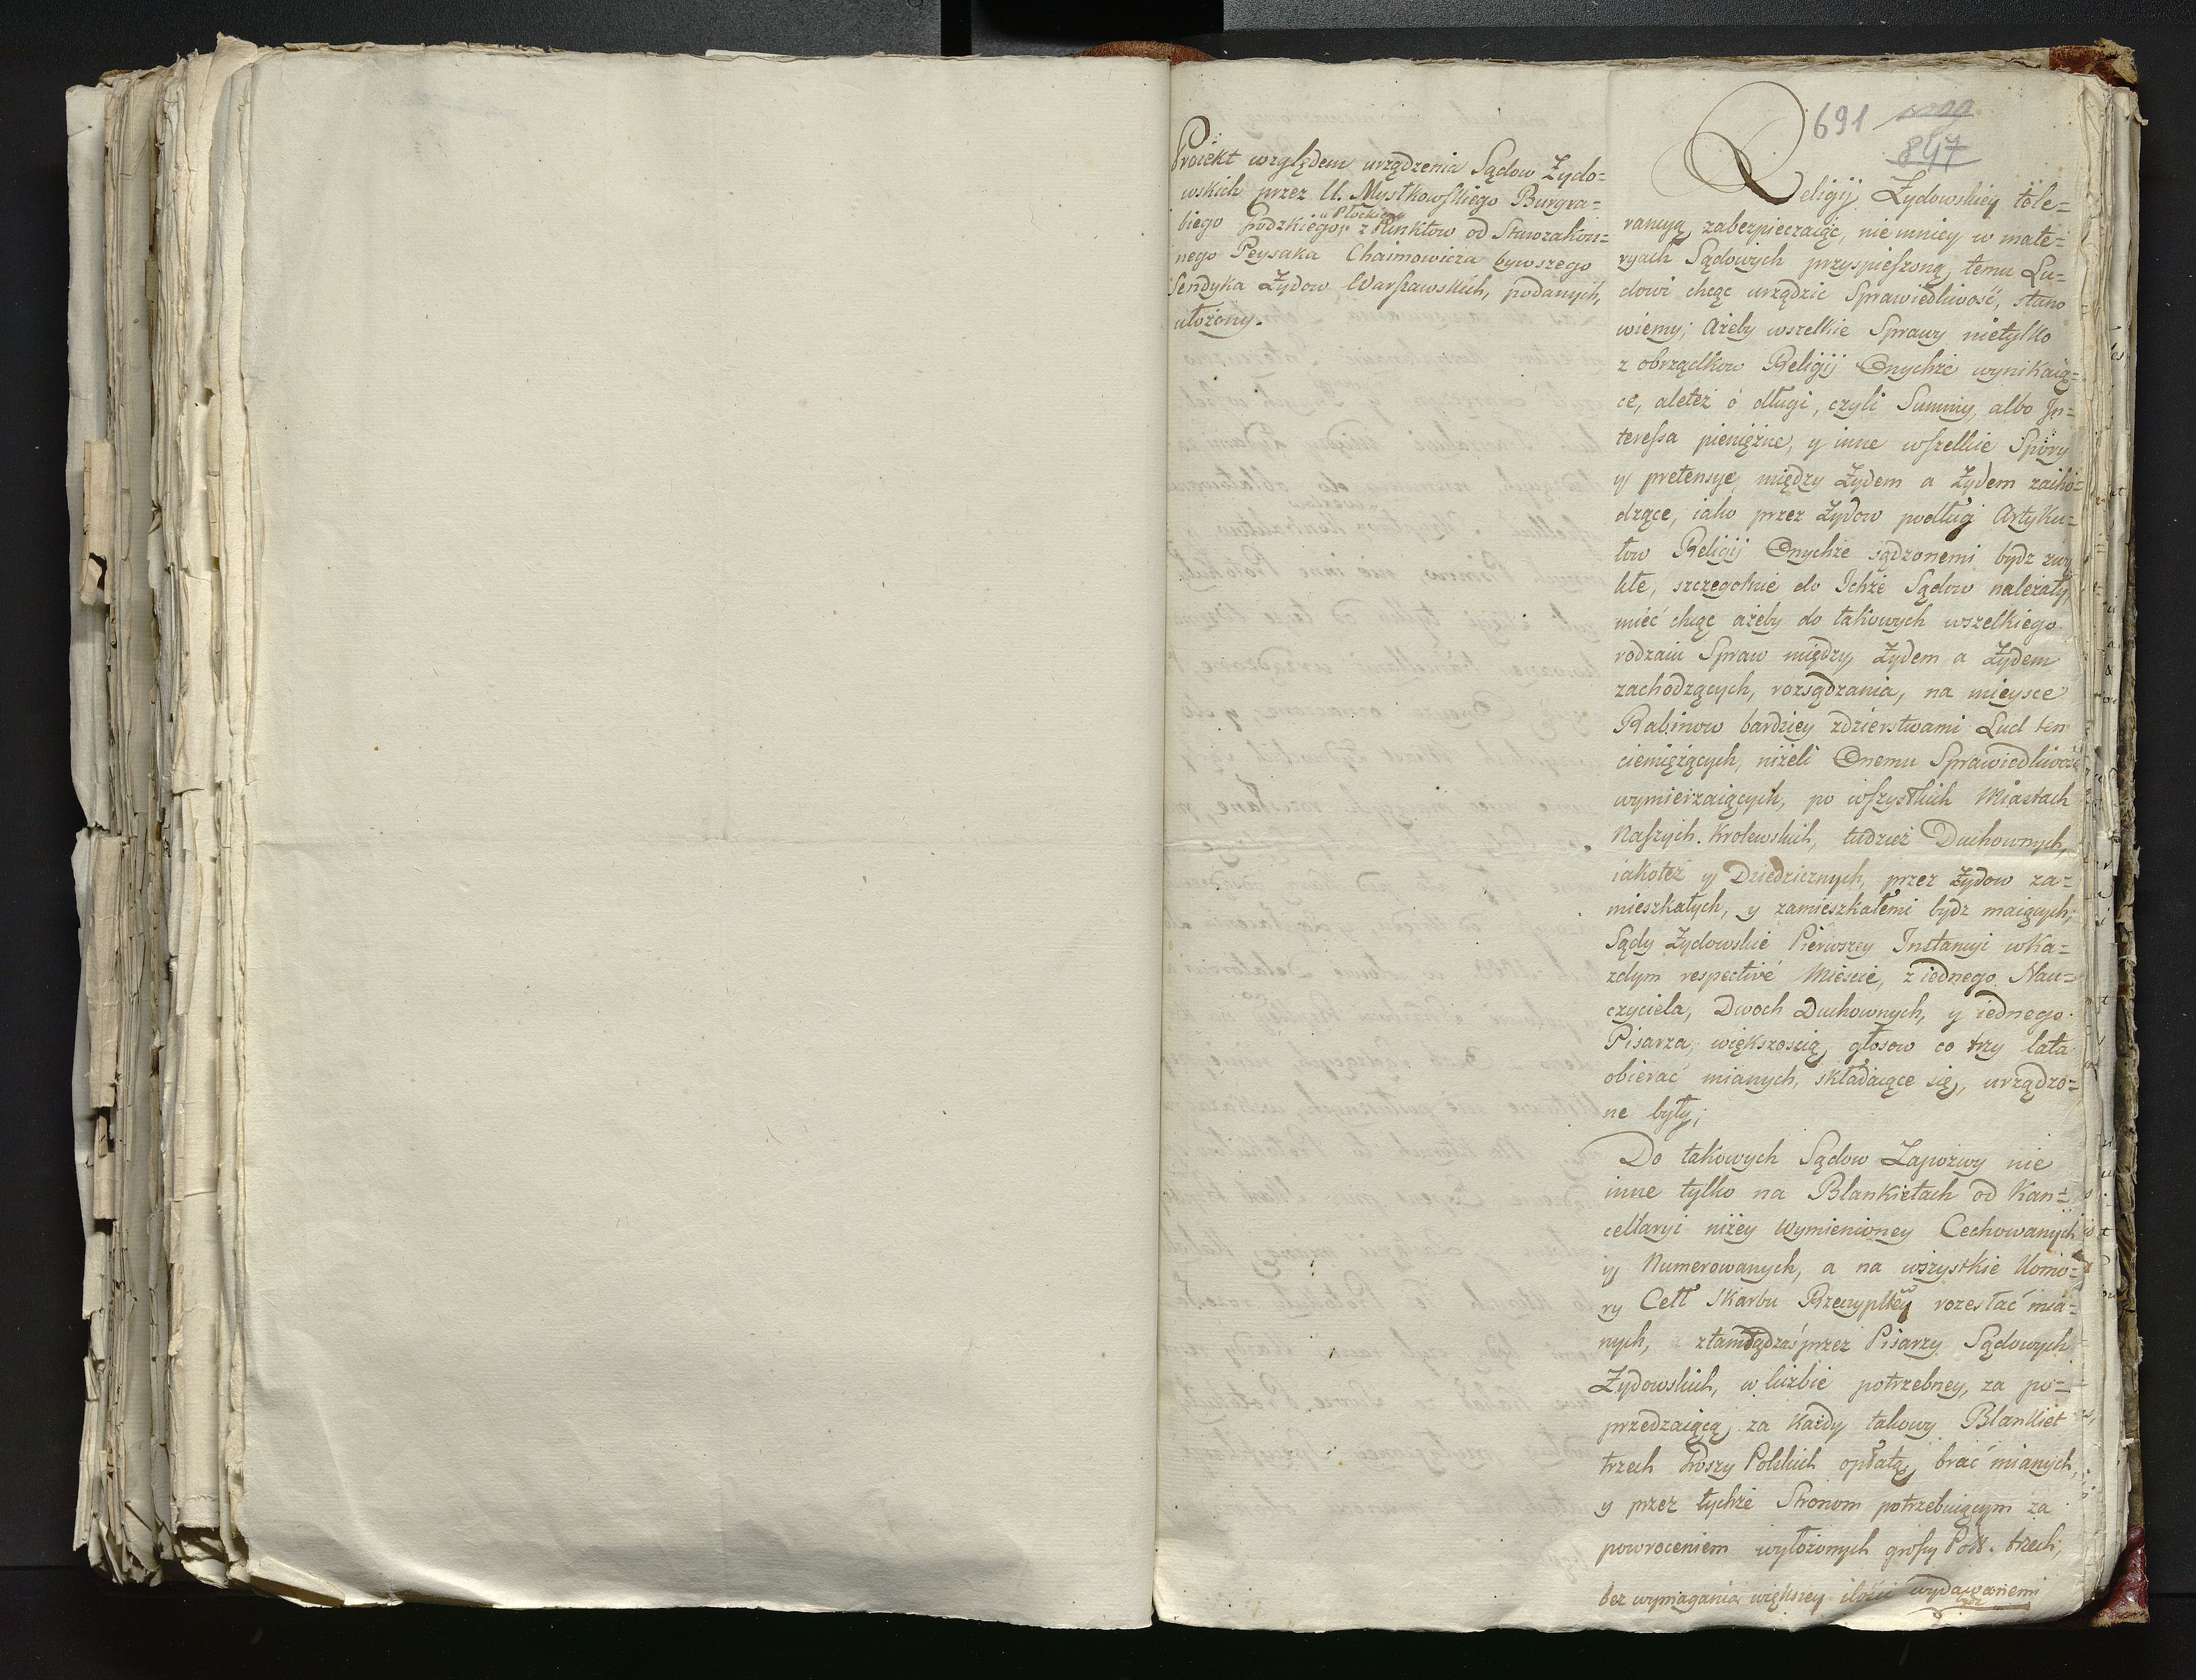 Proiekt względem urządzenia Sądow Zydo=
wskich przez U. Mystkowskiego Burgra=
biego Grodzkiego Płockiego z Punktow od Starozakon=
nego Peysaka Chaimowicza bywszego
Sendyka Żydow Warszawskich, podanych,
ułożony.
691
847
Religij Żydowskiey tole=
rancyą zabezpieczaiąc, nie mniey w mate=
ryach Sądowych przyspieszoną temu Lu=
dowi chcąc urządzić Sprawiedliwość, stano
wiemy; Ażeby wszelkie Sprawy nietylko
z obrządkow Religij Onychże wynikaią=
ce, aleteż ó długi, czyli Summy, albo In=
teressa pieniężne, y inne wszelkie Spory
y pretensye między Żydem a Żydem zacho=
dzące, iako przez Żydow podług Artyku=
łow Religij Onychże sądzonemi bydz zwy
kłe, szczegolnie do Ichże Sądow należały,
mieć chcąc ażeby do takowych wszelkiego
rodzaiu Spraw między Żydem a Żydem
zachodzących, rozsądzania, na mieysce
Rabinow bardziey zdzierstwami Lud ten
ciemiężących, niżeli Onemu Sprawiedliwość
wymierzaiących, po wszystkich Miastach
Naszych Krolewskich, tudzież Duchownych,
iakoteż y Dziedzicznych, przez Żydow za=
mieszkałych, y zamieszkałemi bydz maiących;
Sądy Żydowskie Pierwszey Instancyi w ka=
zdym respectivé Mieście, z iednego Nau=
czyciela, Dwoch Duchownych, y iednego
Pisarza, większością głosow co trzy lata
obierać mianych, składaiące się, urządzo=
ne były;
Do takowych Sądow Zapozwy nie
inne tylko na Blankietach od Kan=
cellaryi niżey wymienioney Cechowanych
y Numerowanych, a na wszystkie Komo=
ry Cełł Skarbu Rzeczypltey rozesłać mia=
nych, ztamdądzaś przez Pisarzy Sądowych
Żydowskich, w liczbie potrzebney, za po=
przedzaiącą za każdy takowy Blankiet
trzech Groszy Polskich opłatą, brać mianych,
y przez tychże Stronom potrzebuiącym za
powroceniem wyłożonych groszy Pols. trzech,
bez wymagania większey ilości wydawanemi
bydz